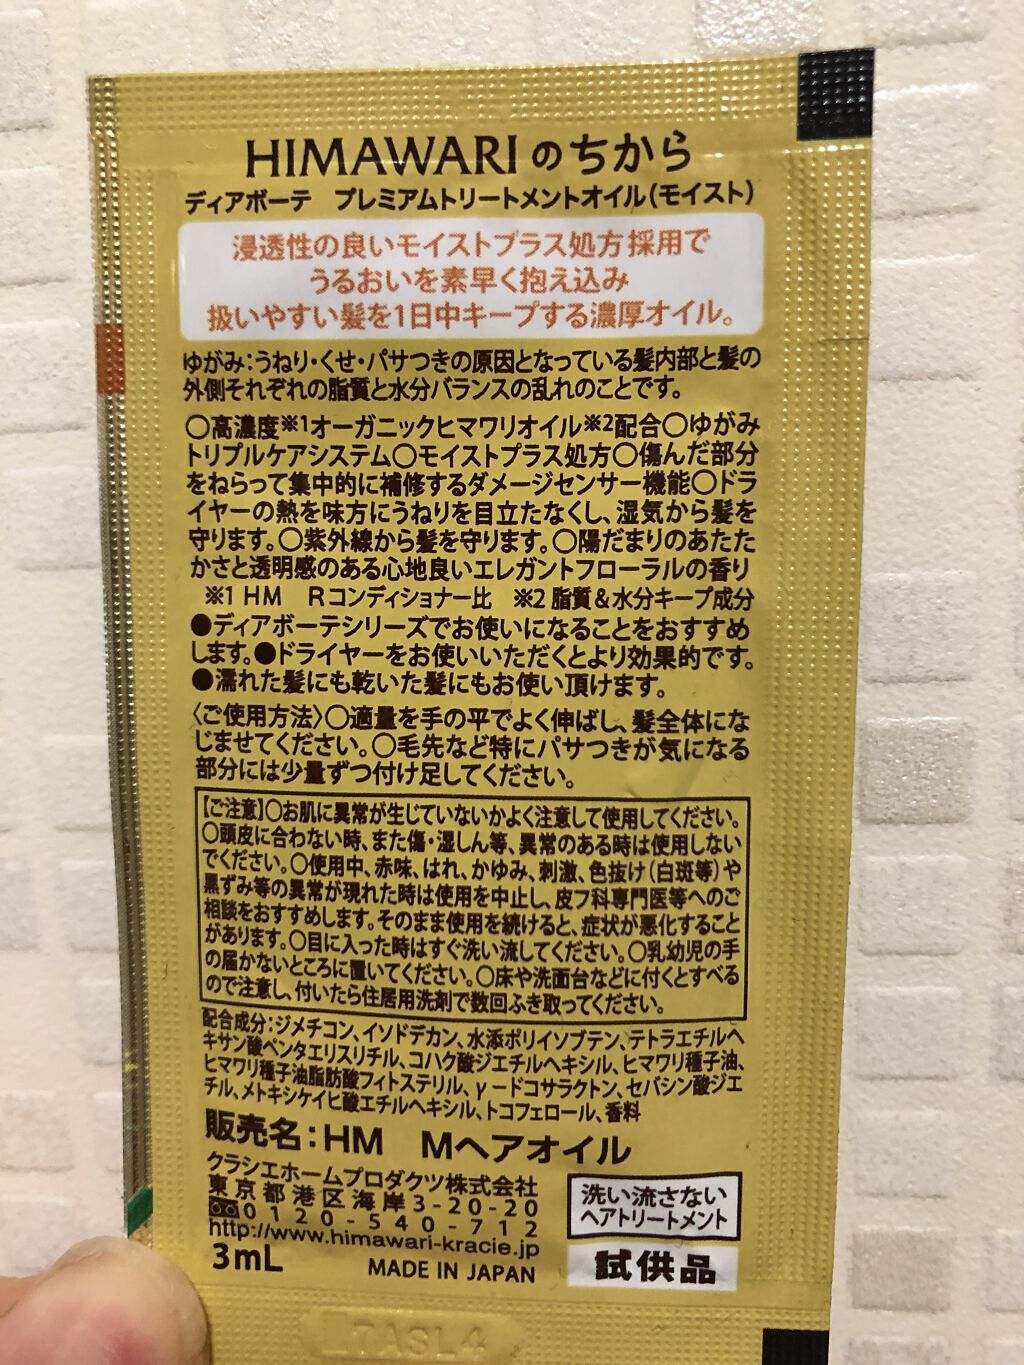 HIMAWARIのちから
ディアボーテ プレミアムトリートメントオイル(モイスト)
浸透性の良いモイストプラス処方採用で
うるおいを素早く抱え込み
扱いやすい髪を1日中キープする濃厚オイル。
ゆがみ:うねり・くせ・パサつきの原因となっている髪内部と髪の
外側それぞれの脂質と水分バランスの乱れのことです。
○高濃度※1オーガニックヒマワリオイル※2配合○ゆがみ
トリプルケアシステム○モイストプラス処方○傷んだ部分
をねらって集中的に補修するダメージセンサー機能○ドラ
イヤーの熱を味方にうねりを目立たなくし、湿気から髪を
守ります。○紫外線から髪を守ります。○陽だまりのあたた
かさと透明感のある心地良いエレガントフローラルの香り
※1 HM Rコンディショナー比 ※2 脂質&水分キープ成分
●ディアボーテシリーズでお使いになることをおすすめ
します。●ドライヤーをお使いいただくとより効果的です。
●濡れた髪にも乾いた髪にもお使い頂けます。
〈ご使用方法〉○適量を手の平でよく伸ばし、髪全体にな
じませてください。○毛先など特にパサつきが気になる
部分には少量ずつ付け足してください。
【ご注意】○お肌に異常が生じていないかよく注意して使用してください。
○頭皮に合わない時、また傷・湿しん等、異常のある時は使用しない
でください。○使用中、赤味、はれ、かゆみ、刺激、色抜け(白斑等)や
黒ずみ等の異常が現れた時は使用を中止し、皮フ科専門医等へのご
相談をおすすめします。そのまま使用を続けると、症状が悪化すること
があります。○目に入った時はすぐ洗い流してください。○乳幼児の手
の届かないところに置いてください。○床や洗面台などに付くとすべる
ので注意し、付いたら住居用洗剤で数回ふき取ってください。
配合成分:ジメチコン、イソドデカン、水添ポリイソブテン、テトラエチルヘ
キサン酸ペンタエリスリチル、コハク酸ジエチルヘキシル、ヒマワリ種子油、
ヒマワリ種子油脂肪酸フィトステリル、γ-ドコサラクトン、セバシン酸ジエ
チル、メトキシケイヒ酸エチルヘキシル、トコフェロール、香料
販売名:HM Mヘアオイル
クラシエホームプロダクツ株式会社
東京都港区海岸3-20-20
0120-540-712
http://www.himawari-kracie.jp
3mL MADE IN JAPAN
洗い流さない
ヘアトリートメント
試供品
7ASL4